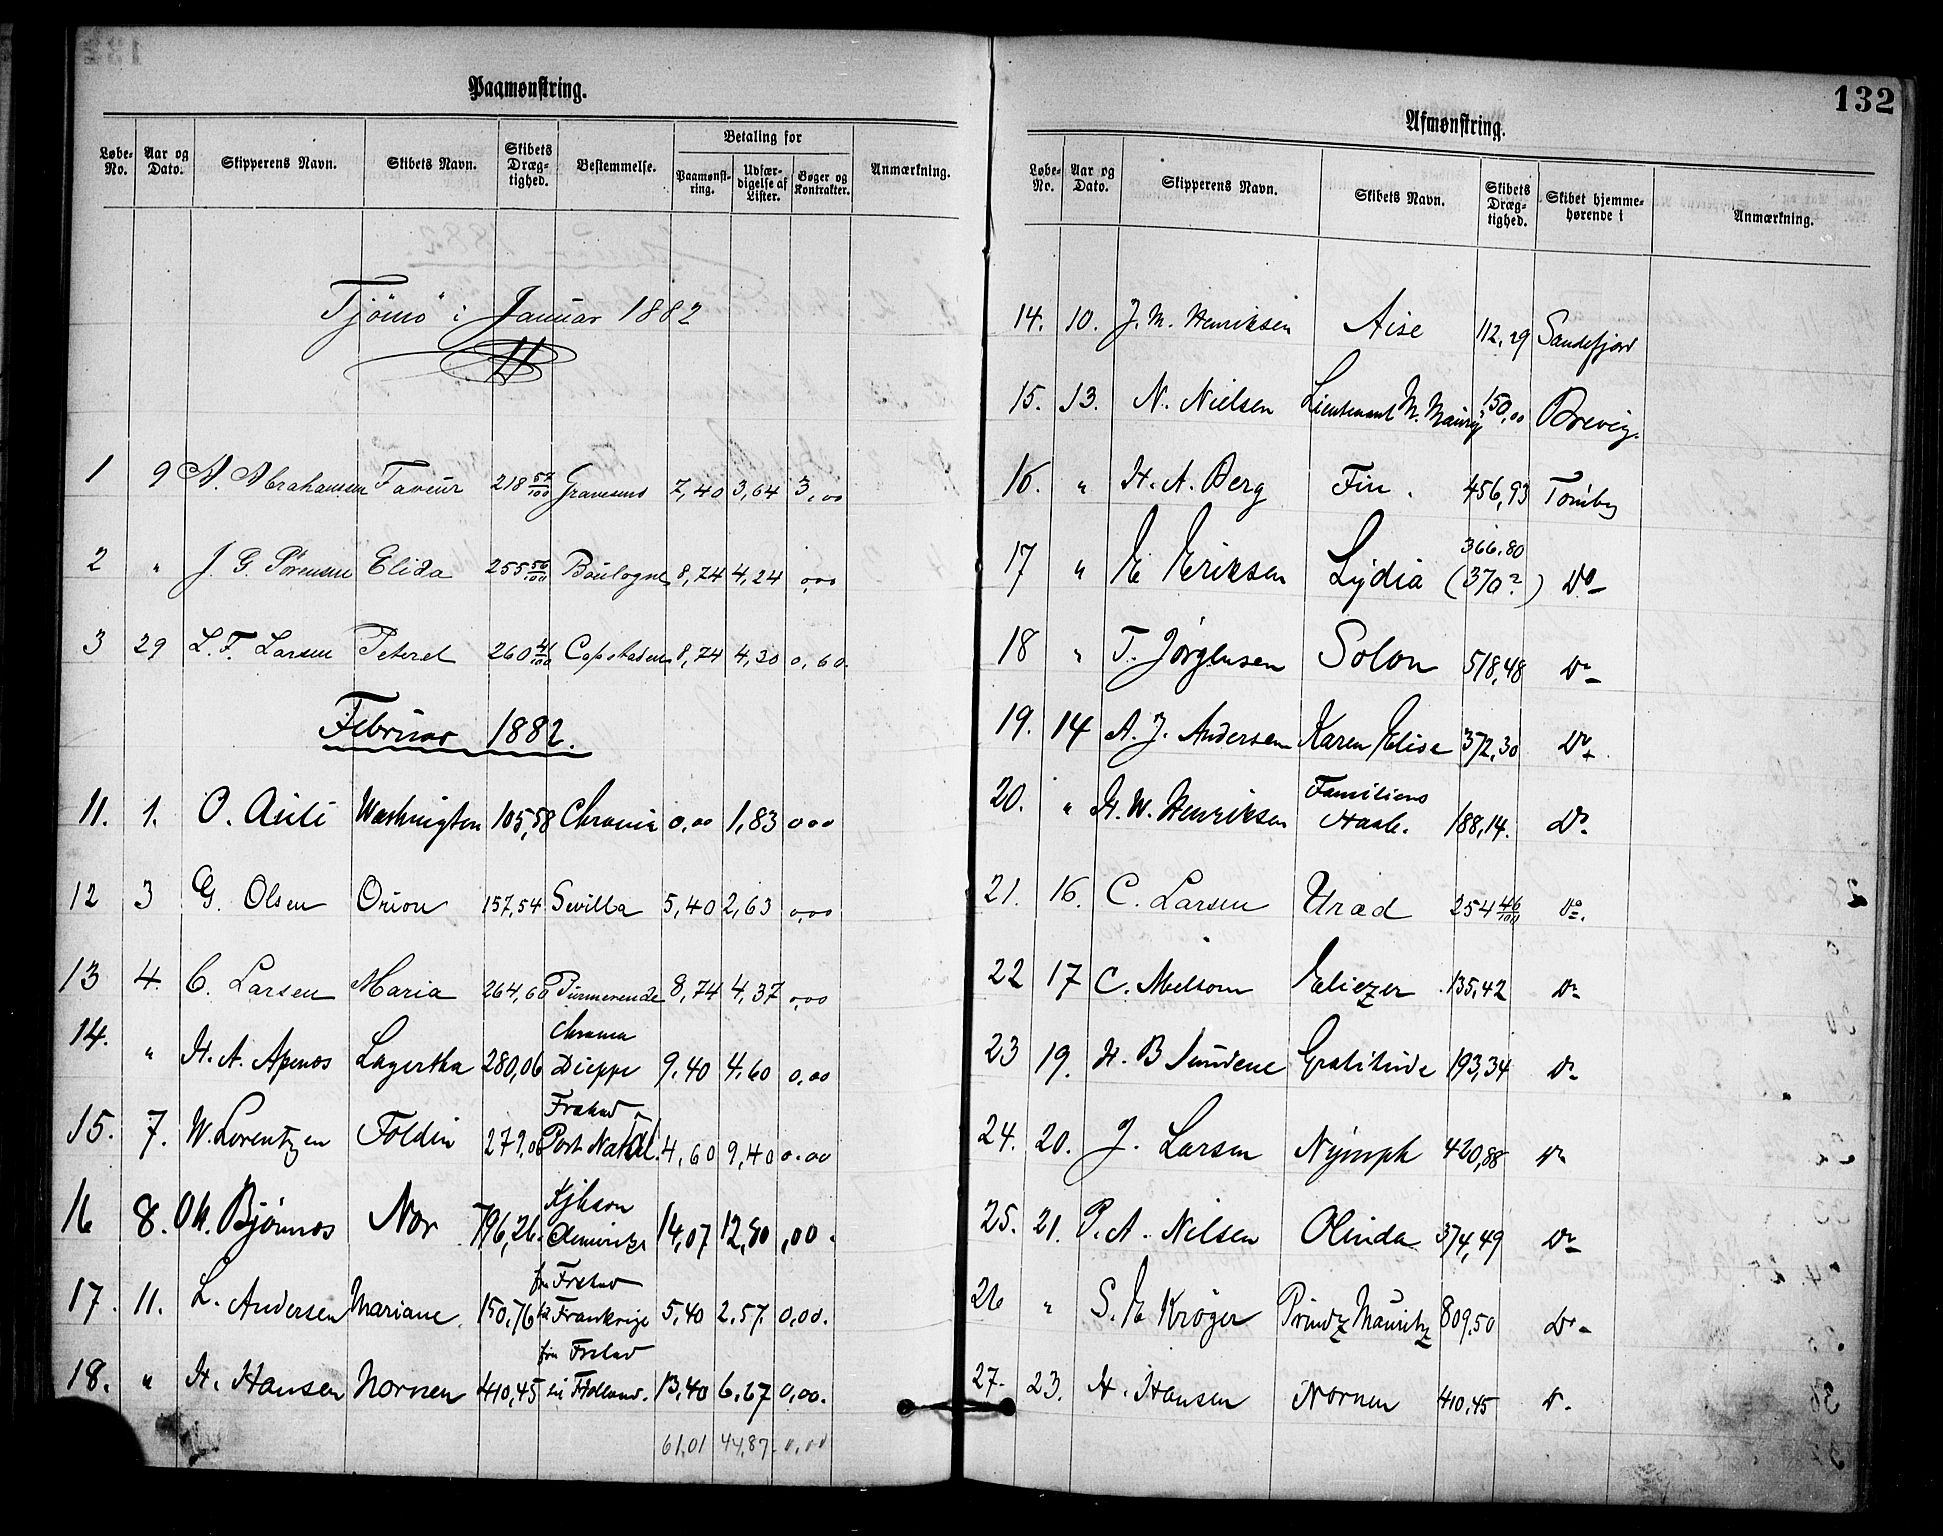 Paamønstring.
Løbe-No. Aar og Dato. Skipperens Navn. Skibets Navn. Skibets Dræg-tighed. Bestemmelse. Betaling for Paamønst-ring. Udfær-digelse af Lister. Bøger og Kontrakter. Anmærkning.
Tjömö i Januar 1882
1 9 A. Abrahamsen Faveur 218 57/100 Gravesend 7,40 3,64 3,00
2 " J. G. Sörensen Elida 255 56/100 Boulogne 8,74 4,24 0,00
3 29 L. F. Larsen Peterel 260 41/100 Capstaden 8,74 4,30 0,60.
Februar 1882.
11. 1. O. Washington 105,58 Chrania 0,00 1,83 000
12 3 G. Olsen Orion 157,54 Sevilla 5,40 2,63 0,00
13 4. C. Larsen Maria 264,60 Purmerende 8,74 4,37 0,00
14. " H. A. Apenes Lagertha 280,06 Chrania Dieppe 9,40 4,60 0,00
15. 7. W. Lorentzen Foldin 279,06 Frstad Port Natal. 4,60 9,40 0.00
16 8. O M. Bjönnes Nor 796,26. Amerika 14,07 12,80 ,00.
17. 11. L. Andersen Mariane. 150,76 fra Frstad til Frankrige 5,40 2,57. 0,00.
18. " H. Hansen Nornen 410,45 fra Frstad til Holland. 13,40 6,67 0,00.
61.01 44,87. 0,00
132
Afmønstring.
Løbe-No. Aar og Dato. Skipperens Navn. Skibets Navn. Skibets Dræg-tighed. Skibet hjemme-hørende i Anmærkning.
14. 10. J. M. Henriksen Aise 112,29 Sandefjord
15. 13. N. Nielsen Lieutenant M. Maury 150,00 Brevig.
16. " H. A. Berg Fin. 456,93 Tønsby
17 " E Eriksen Lydia 366,80 (370?) Do
18 " T. Jørgensen Solon 518,48 Do
19. 14 A. J. Andersen Karen Elise 372,30 Do
20. " H. W. Henriksen Familiens Haab. 188,14. Do
21. 16. C. Larsen Urad 254 46/100 Do.
22 17 C. Melsom Eliezer 135,42 Do
23 19. H. B Sundene Gratitude 193,34 Do
24. 20. J. Larsen Nymph 420,88 Do
25. 21. P. A. Nilsen Olinda 374,49 Do
26 " S. E Krøger Prindz Mauritz 809,50 Do
27. 23. H. Hansen Nornen 410,45 Do